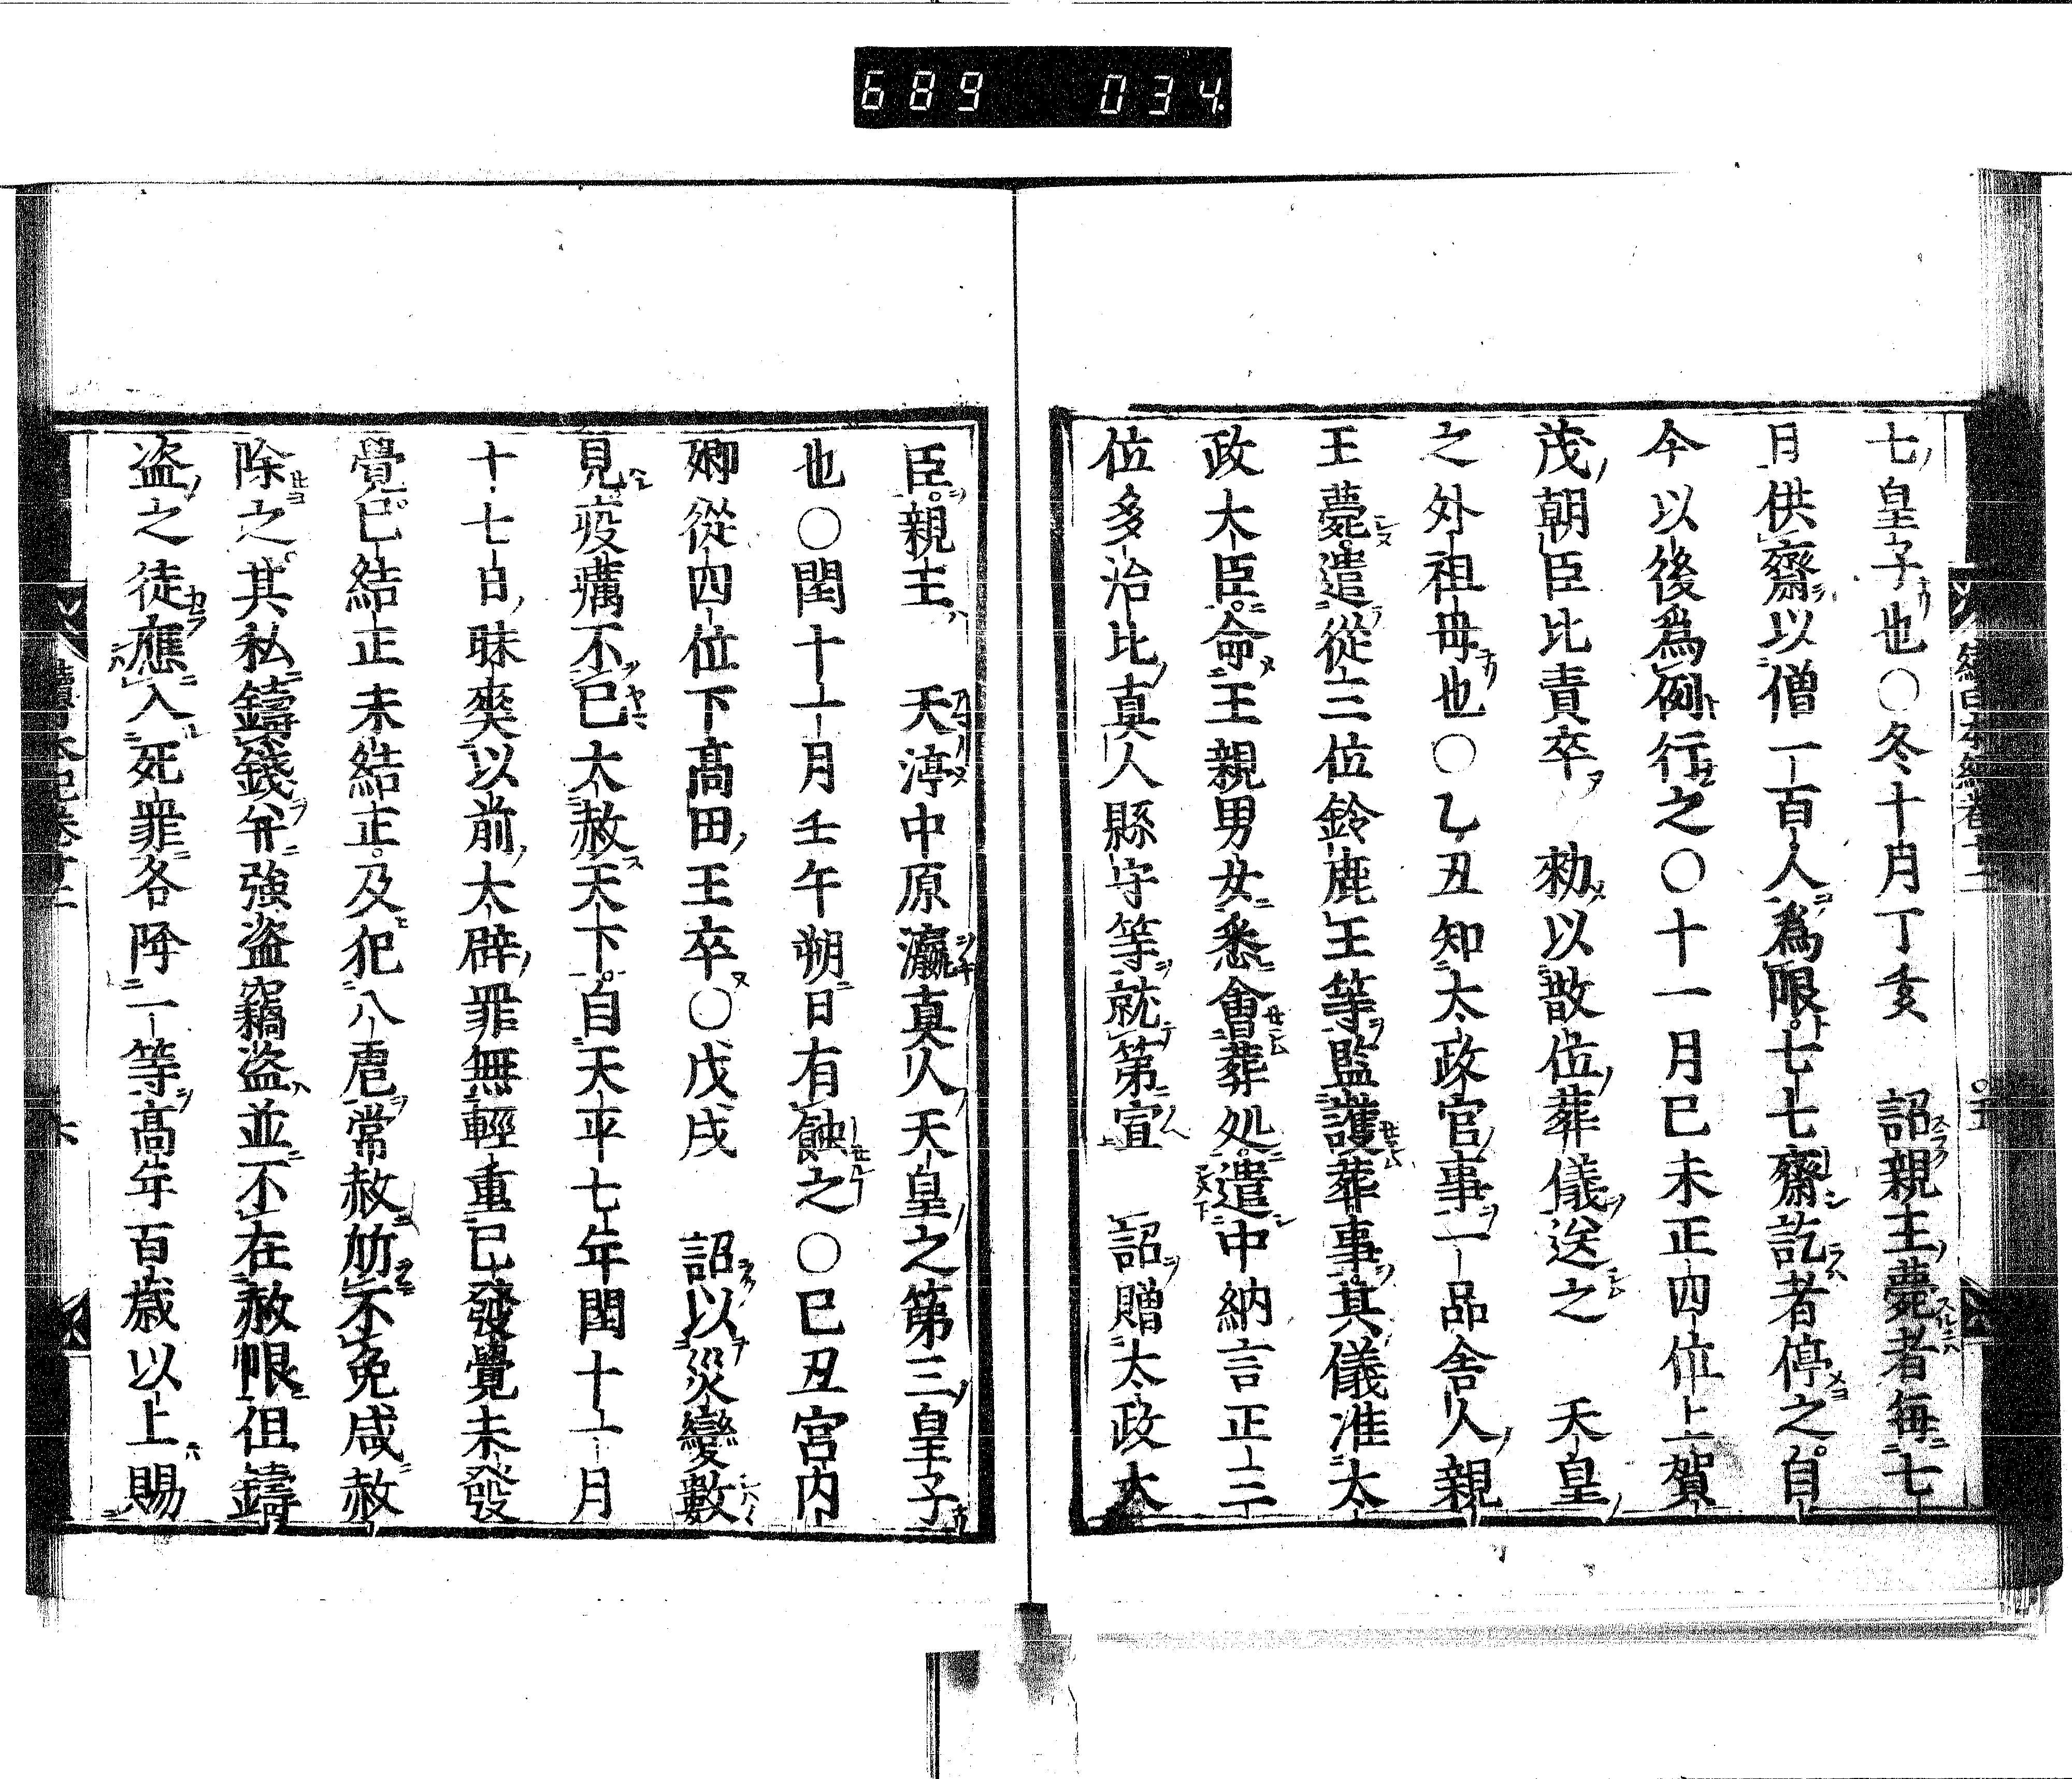 689 034.
七皇子也○冬十月丁亥　詔親王薨者毎七
月供齋以僧一百人爲限七七齋訖者停之自
今以後爲例行之○十一月己未正四位上賀
茂朝臣比責卒　勑以散位葬儀送之　天皇
之外祖毋也○乙丑知太政官事一品舎人親
王薨遣從三位鈴鹿王等監護葬事其儀准太
政大臣命王親男女悉會葬処遣中納言正三
位多治比真人縣守等就第宣　詔贈太政大
臣親王　天渟中原瀛真人天皇之第三皇子
也○閏十一月壬午朔日有蝕之○巳丑宮内
卿從四位下髙田王卒○戊戌　詔以災變數
見疫癘不已大赦天下自天平七年閏十一月
十七日昧爽以前大辟罪無輕重已發覺未發
覺已結正未結正及犯八虐常赦所不免咸赦
除之其私鑄錢并強盗竊盗並不在赦限但鑄
盗之徒應入死罪各降一等髙年百歳以上賜